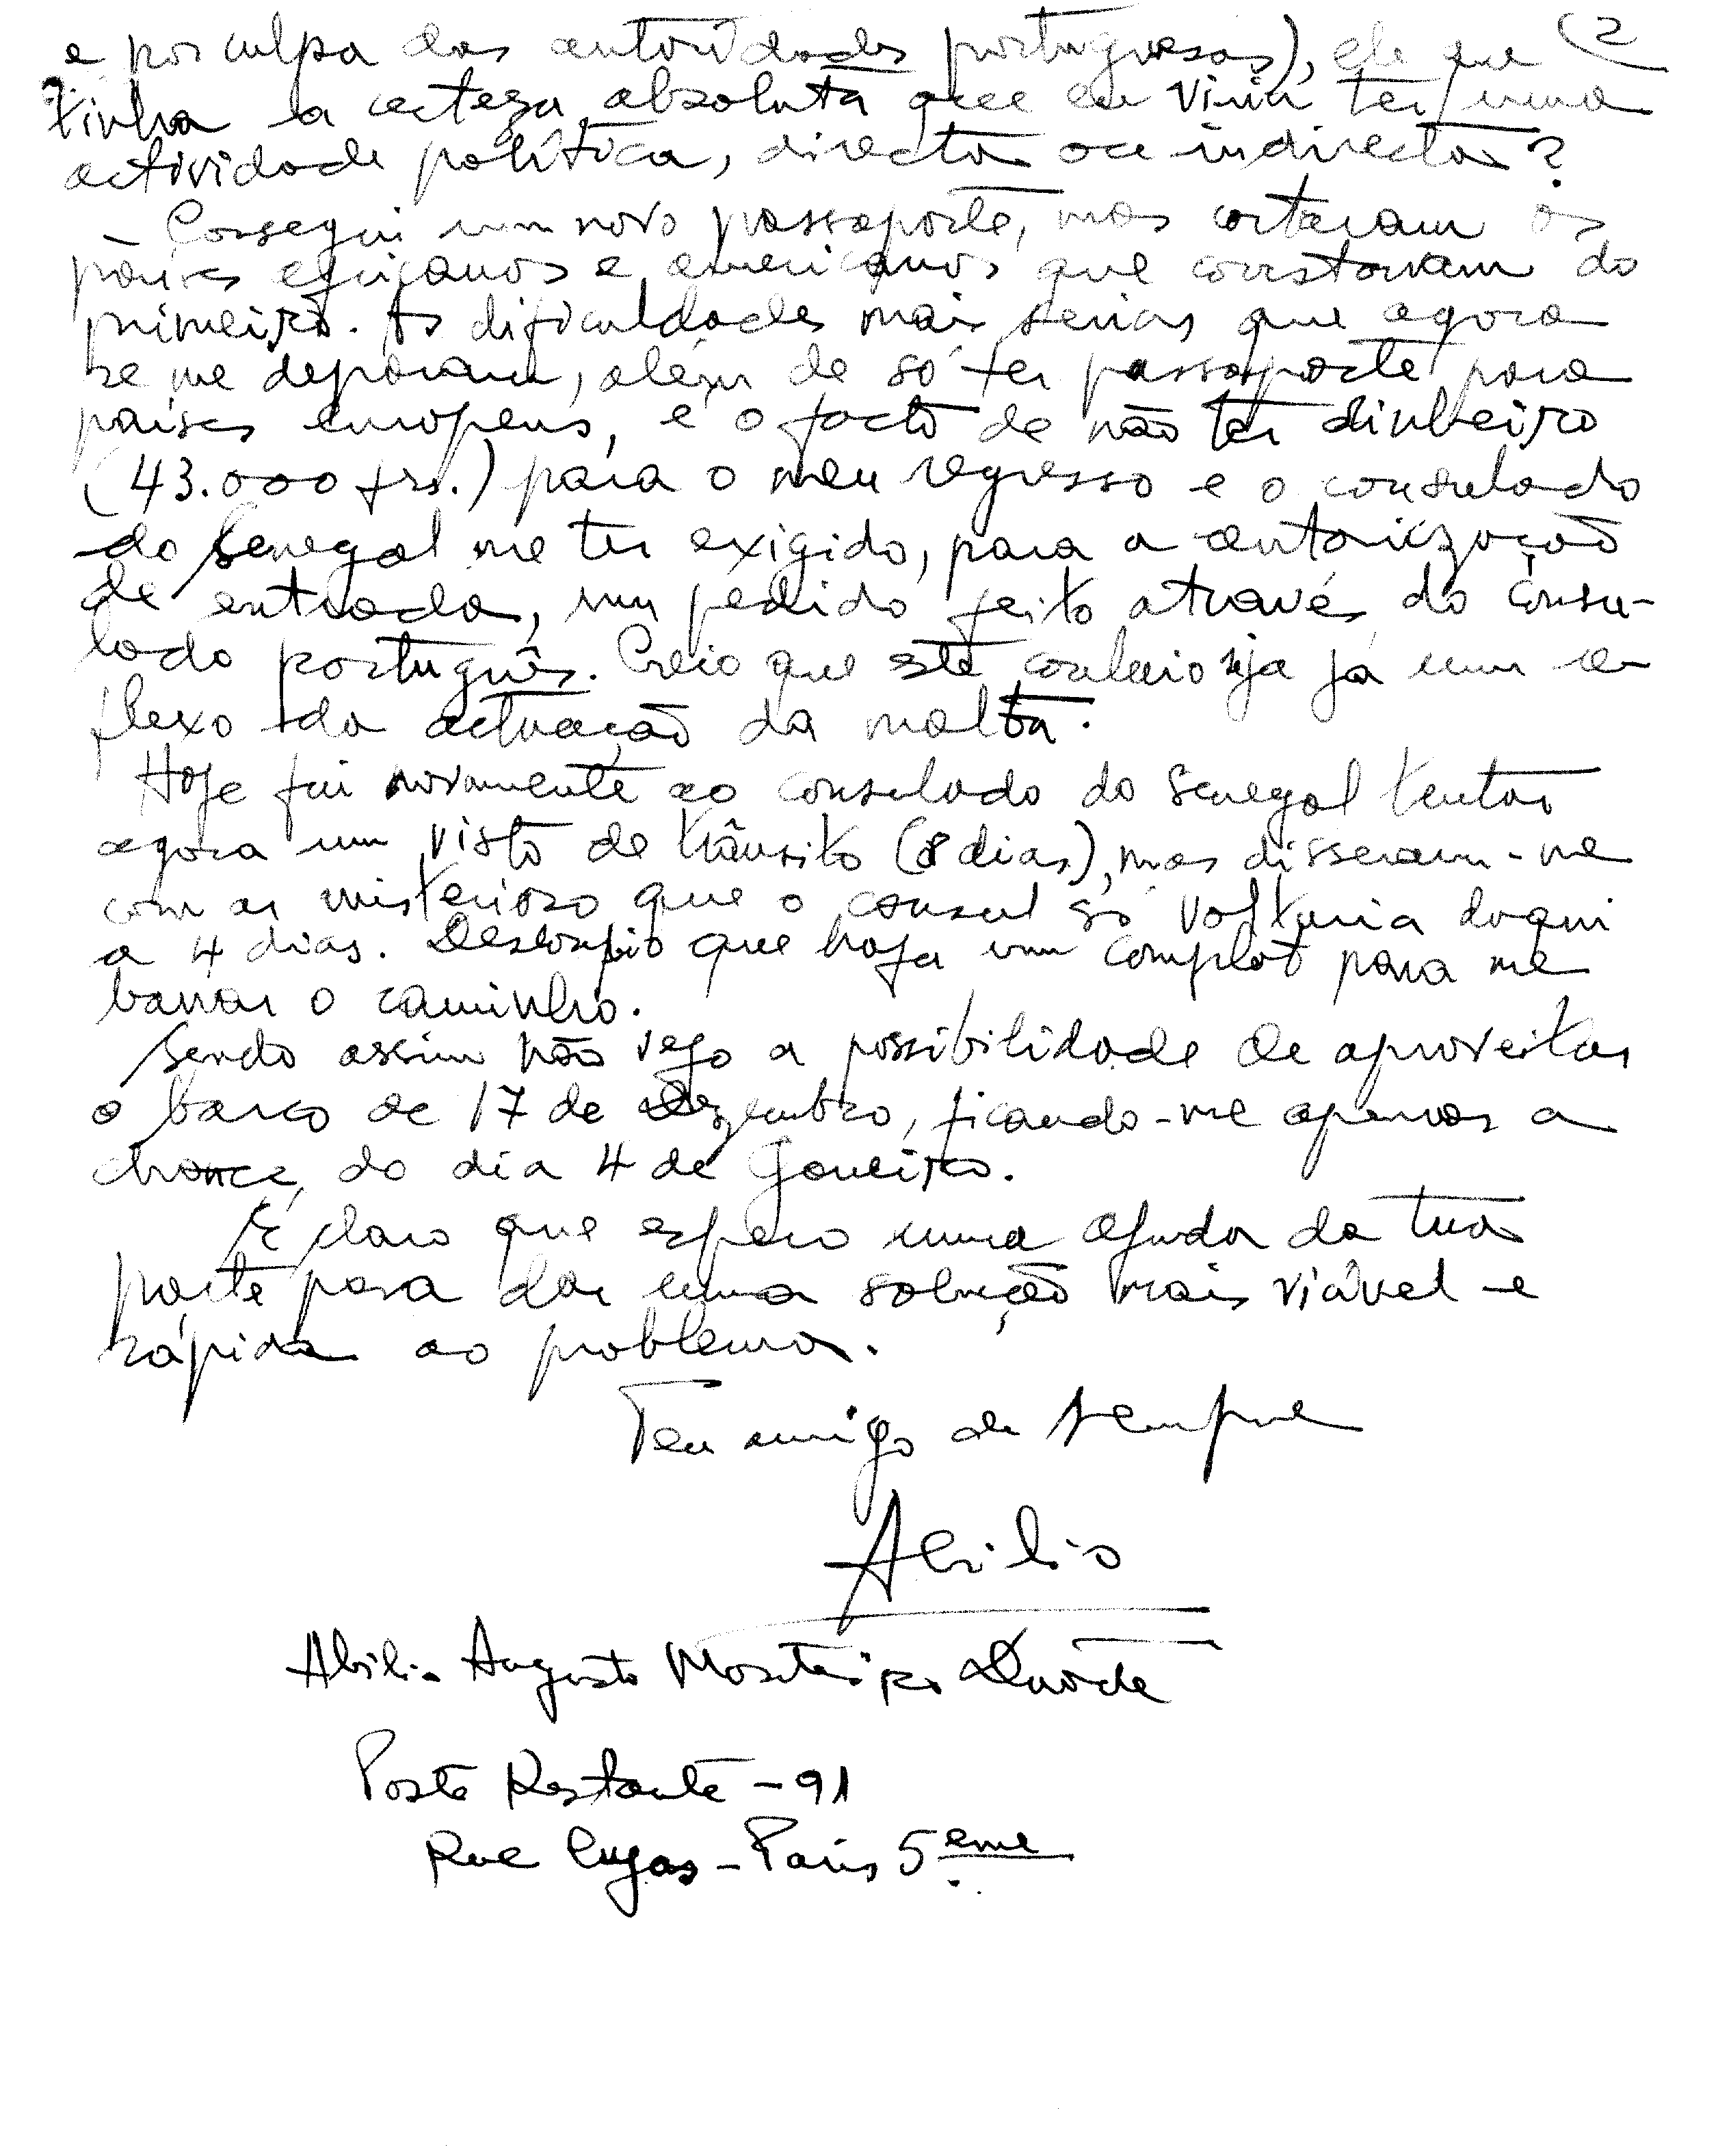 (2
e por culpa das autoridades portuguesas), ele que
tinha a certeza absoluta que eu viria ter uma
actividade política, directa ou indirecta?
- Consegui um novo passaporte, mas cortaram os
países africanos e americanos que constavam do
primeiro. As dificuldades mais sérias que agora
se me deparam, além de só ter passaporte para
países europeus, é o facto de não ter dinheiro
(43.000 frs.) para o meu regresso e o consulado
do Senegal me ter exigido, para a autorização
de entrada, um pedido feito através do consu-
lado português. Creio que este seja já um re-
flexo da actuação da malta.
Hoje fui novamente ao consulado do Senegal tentar
agora um visto de trânsito (8 dias), mas disseram-me
com ar misterioso que o consul só voltaria daqui
a 4 dias. Desconfio que haja um complot para me
barrar o caminho.
Sendo assim não vejo a possibilidade de aproveitar
o barco de 17 de Dezembro, ficando-me apenas a
chance do dia 4 de Janeiro.
É claro que espero uma ajuda da tua
parte para dar uma solução mais viável e
rápida ao problema.
Teu amigo de sempre
Abilio
Abilio Augusto Monteiro Duarte
Poste Restante - 91
Rue Cujas - Paris 5eme